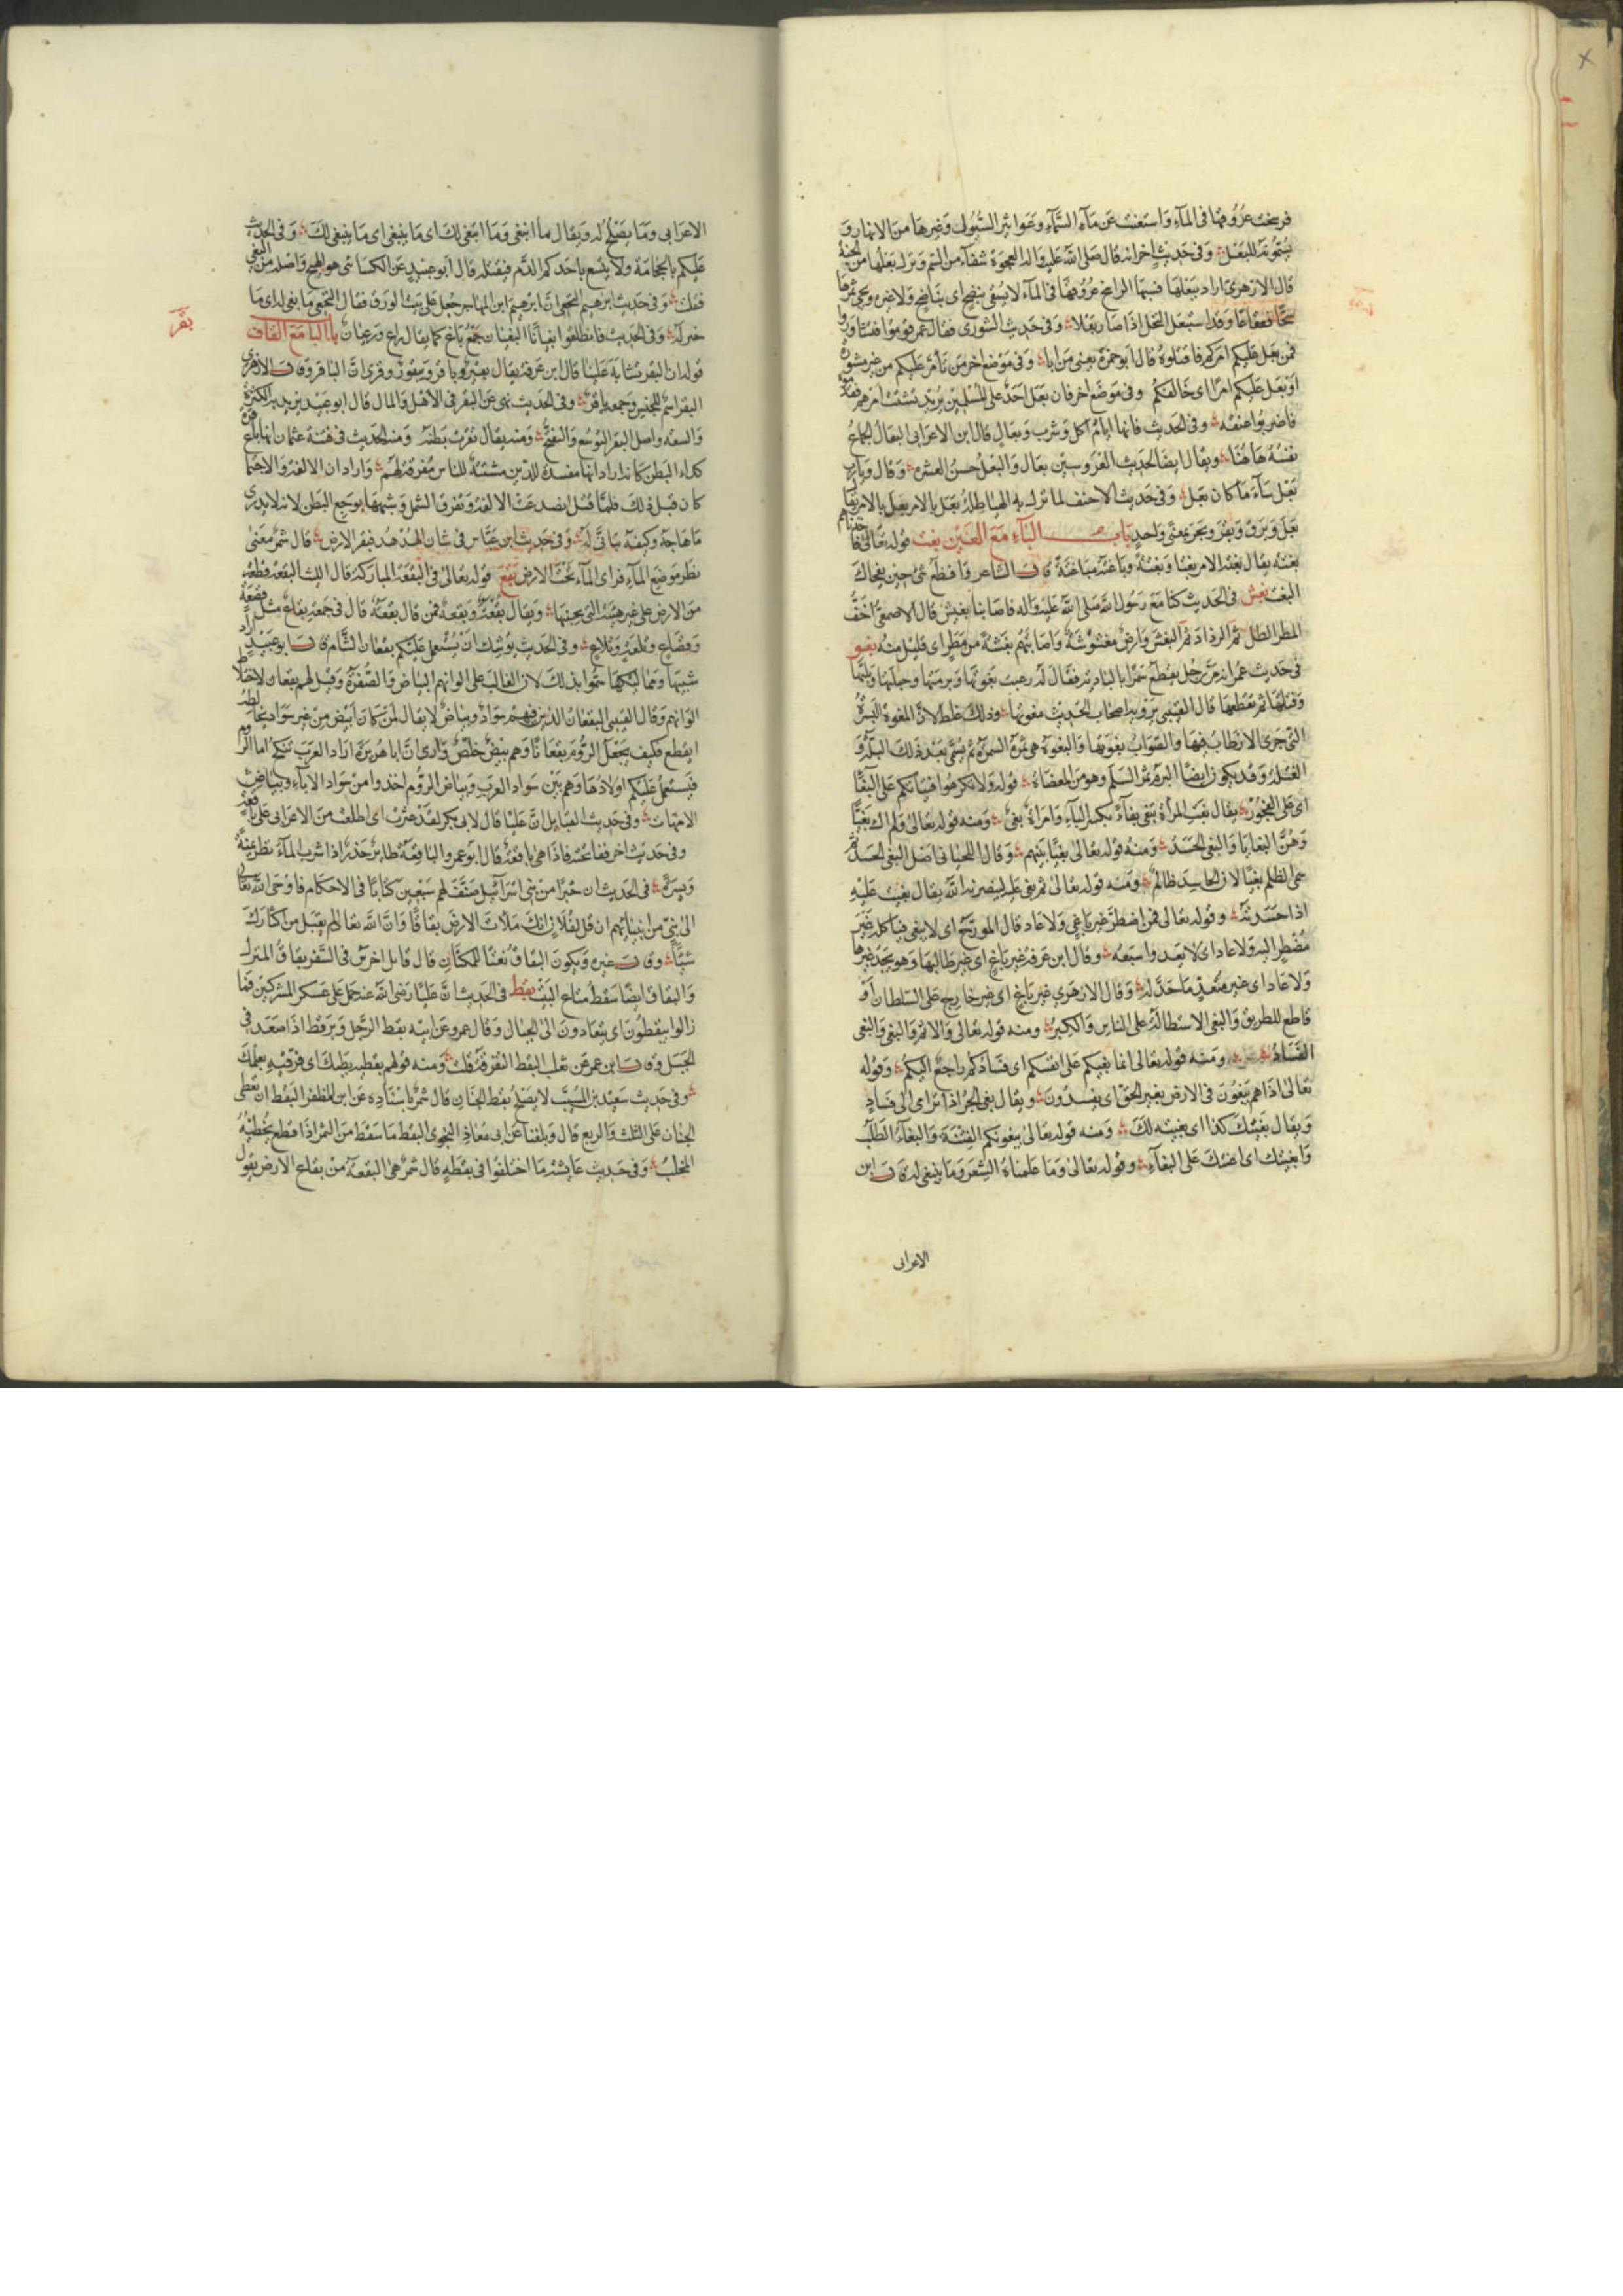 فرسخت عروقها في الماء واستغنت عن ماء السماء وعواثير السيول وغيرها من الانهار و
يسمونه البعل وفي حديث اخر انه قال صلى الله عليه واله العجوة شفاء من السم ونزل بعلها من الجنة
قال الازهري اراد ببعلها قسبها الراسخ عروقها في الماء لا يسقى بنضح اى بناضح ولا غيره ويجي ثمرها
سحا قعقاعا وقد استبعل النخل اذا صار بعلا وفي حديث الشورى فقال عمر قوموا فتشاوروا
فمن بعل عليكم امركم فاقتلوه قال ابو حمزة يعني من ابا وفي موضع اخر من تامر عليكم من غير مشورة
او بعل عليكم امرا اى خالفكم وفي موضع اخر فان بعل احد على المسلمين يريد تشتت امرهم فقدموه
فاضربوا عنقه وفي الحديث فانها ايام اكل وشرب وبعال قال ابن الاعرابي البعال الجماع
نفسه هاهنا ويقال ايضا لحديث العروسين بعال والبعل حسن العشرة وقال و
بعل ساء ما كان بعل وفي حديث الاحنف لما نزل به الهياطلة بعل بالامر يقال
بعل وبرق وبقر وبحر بمعنى واحد باب الباء مع الغين بغت قوله تعالى فاخذناهم
بغتة يقال بغته الامر بغتا وبغتة وباغته مباغتة قال الشاعر وافظع شئ حين يفجاك
البغت بغش في الحديث كنا مع رسول الله صلى الله عليه واله فاصابنا بغيش قال الاصمعي اخف
المطر الطل ثم الرذاذ ثم البغش وارض مغشوشة واصابتهم بغشة من مطر اى قليل منه بغو
في حديث عمر انه مر رجل يقطع سمرا بالبادية فقال له رعيت بغوتها وبرمتها وحبلتها وبلتها
وفتلتها ثم تقطعها قال القتيبي يرويه اصحاب الحديث معوتها وذلك غلط لان المعوة البسرة
التي جرى الارطاب فيها والصواب بغوتها والبغوة هي ثمرة السمرة ثم يسمى بعد ذلك البلة و
الفتلة وقد يكون ايضا البرم ثمر السلم وهو من العضاه قوله ولا تكرهوا فتياتكم على البغا
اى على الفجور يقال بغت المراة تبغى بغاء بكسر الباء وامراة بغى ومنه قوله تعالى ولم اك بغيا
وهن البغايا والبغى الحسد ومنه قوله تعالى بغيا بينهم وقال اللحياني اصل البغى الحسد ثم
سمى الظلم بغيا لان الحاسد ظالم ومنه قوله تعالى ثم بغى عليه لينصرنه الله يقال بغيت عليه
اذا حسدته وقوله تعالى فمن اضطر غير باغي ولا عاد قال المورج اى لا يبغى فياكله غير
مضطر اليه ولا عاد اى لا يعد واسبعه وقال ابن عرفة غير باغ اى غير طالبها وهو يجد غيرها
ولا عاد اى غير متعد ما حد له وقال الازهري غير باغ اى غير خارج على السلطان او
قاطع للطريق والبغى الاستطالة على الناس والكبر ومنه قوله تعالى والاثم والبغى والبغى
الفساد ومنه قوله تعالى انما بغيكم على انفسكم اى فسادكم راجع اليكم وقوله
تعالى اذا هم يبغون في الارض بغير الحق اى يفسدون ويقال بغى الجرح اذا ترامى الى فساد
ويقال بغيتك كذا اى بغيته لك ومنه قوله تعالى يبغونكم الفتنة والبغاء الطلب
وابغيتك اى اعنتك على البغاء وقوله تعالى وما علمناه الشعر وما ينبغى له قال ابن
الاعرابى
الاعرابي وما يصلح له ويقال ما انبغى وما ابتغى لك اى ما ينبغى اى ما ينبغي لك وفي الحديث
عليكم بالحجامة ولا يتبيغ باحدكم الدم فيقتله قال ابو عبيد عن الكسائي هو الهيج واصله من البغي
فقلت وفي حديث ابرهيم النخعي ان ابرهيم ابن المهاجر جعل على بيت الورق فقال النخعي ما بغى له اى ما
خير له وفي الحديث فانطلقوا بغيانا البغيان جمع باغ كما يقال راع ورعيان باب البا مع القاف
بقر
قوله ان البقر تشابه علينا قال ابن عرفة يقال بقير وباقر وبيقور وقرى ان الباقر وقال الازهري
البقر اسم للجنس وجمعه باقر وفي الحديث نهى عن التبقر في الاهل والمال قال ابو عبيد يريد به الكثرة
والسعة واصل البقر التوسع والتفتح ومنه يقال بقرت بطنه ومنه الحديث في فتنة عثمان انها باقرة
كداء البطن كانه اراد انها مفسدة للدين مشتتة للناس مفرقة لهم واراد ان الالفة والاجتما
كان قبل ذلك فلما قتل انصدعت الالفة وتفرق الشمل وشبهها بوجع البطن لانه لا يدرى
ما هاجه وكيف يتاتى له وفي حديث ابن عباس في شان الهدهد فبقر الارض قال شمر معنى
نظر موضع الماء فراى الماء تحت الارض بقع قوله تعالى في البقعة المباركة قال الليث البقعة قطعة
من الارض على غير هيئة التي بجنبها ويقال بقعة وبقعة فمن قال بقعة قال في جمعه بقاع مثل قصعة
وقصاع وتلعة وتلاع وفي الحديث يوشك ان يستعمل عليكم بقعان الشام قال ابو عبيد اراد
سبيها ومماليكها سموا بذلك لان الغالب على الوانهم البياض والصفرة وقيل لهم بقعان لاختلا
الوانهم وقال القتيبي البقعان الذين فيهم سواد وبياض لا يقال لمن كان ابيض من غير سواد يخالطه
ابقع فكيف يجعل الروم بقعانا وهم بيض خلص وارى ان ابا هريرة اراد العرب تنكح اماء الروم
فيستعمل عليكم اولادها وهم بين سواد العرب وبياض الروم اخذوا من سواد الاباء وبياض
الامهات وفي حديث القبايل ان عليا قال لابي بكر لقد عثرت اى اطلعت من الاعرابي على باقعة
وفي حديث اخر ففاتحته فاذا هي باقعة قال ابو عمرو الباقعة طاير حذر اذا شرب الماء نظر يمنة
ويسرة في الحديث ان حبرا من بني اسرائيل صنف لهم سبعين كتابا في الاحكام فاوحى الله تعالى
الى نبي من انبيائهم ان قل لفلان انك ملات الارض بقاقا وان الله تعالى لم يقبل من
شيئا وقال غيره ويكون البقاق نعتا للمكثار قال قايل اخرس في السفر بقاق المنزل
والبقاق ايضا سقط متاع البيت بقط في الحديث ان عليا رضي الله عنه حمل على عسكر المشركين فما
زالوا يبقطون اى يتعادون الى الجبال وقال عمرو عن ابيه بقط الرجل وبرقط اذا صعد في
الجبل وقال ابن عمر عن ثعلب البقط التفرقة قلت ومنه قولهم بقطيه بطبك اى فرقيه بعلمك
وفي حديث سعيد بن المسيب لا يصلح بقط الجنان قال شمر باسناده عن ابن المظفر البقط ان تعطى
الجنان على الثلث والربع قال وبلغنا عن ابى معاذ النحوى البقط ما سقط من التمر اذا قطع يخطئه
المخلب وفي حديث عايشة ما اختلفوا في بقطة قال شمر هى البقعة من بقاع الارض يقول